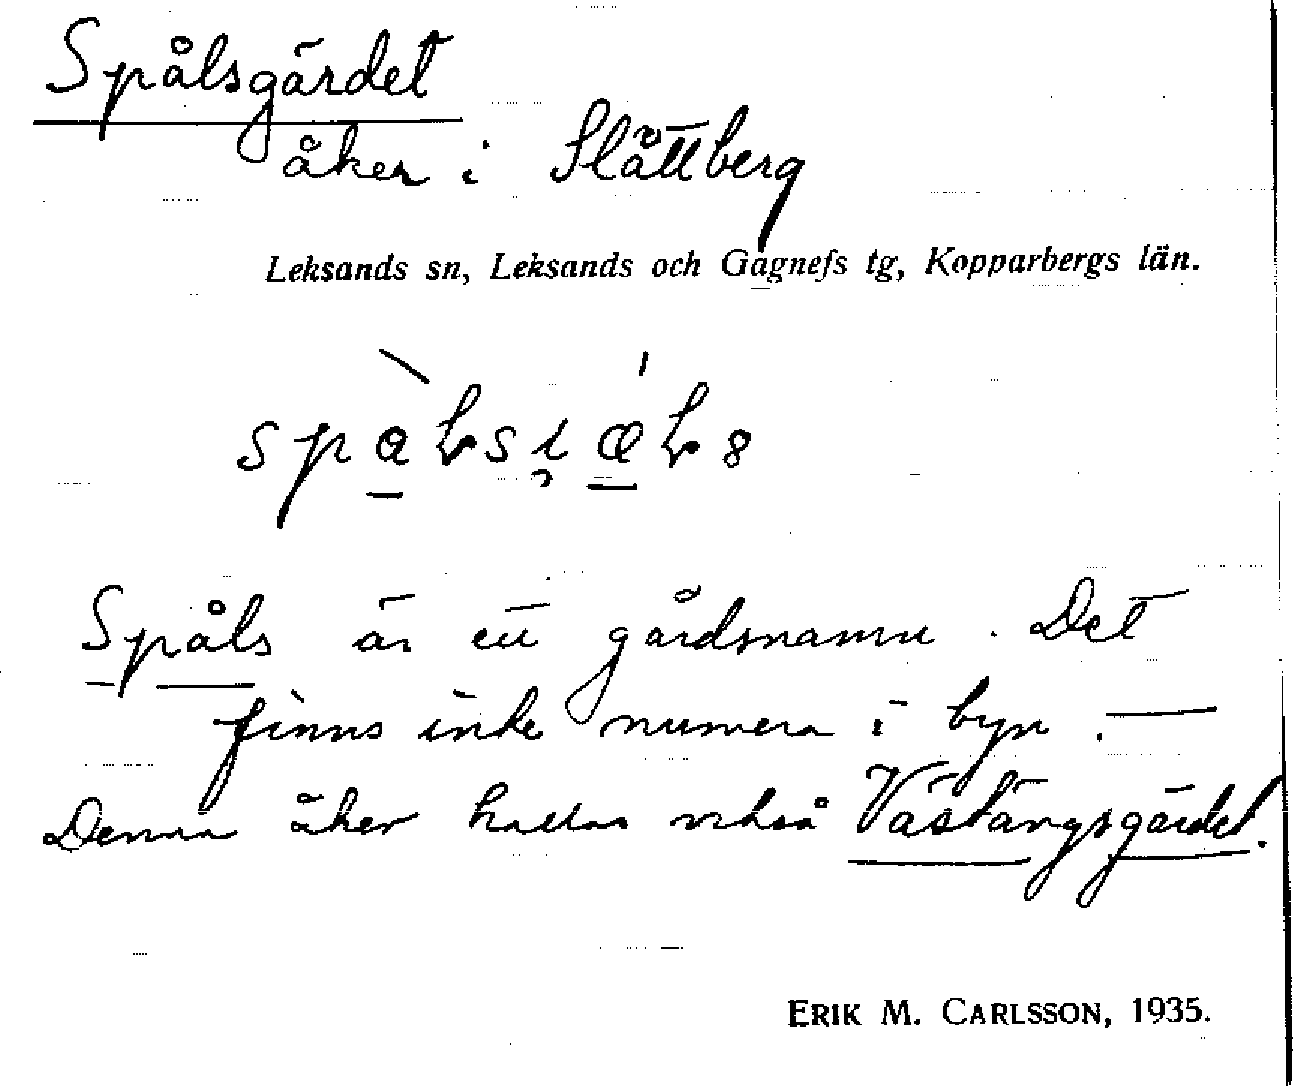 Spålsgärdet
åker i Slättberg
Leksands sn, Leksands och Gagnefs tg, Kopparbergs län.
Spåls är ett gårdsnamn. Det
finns inte numera i byn. —
Denna åker kallas också Västängsgärdet.
ERIK M. CARLSSON, 1935.